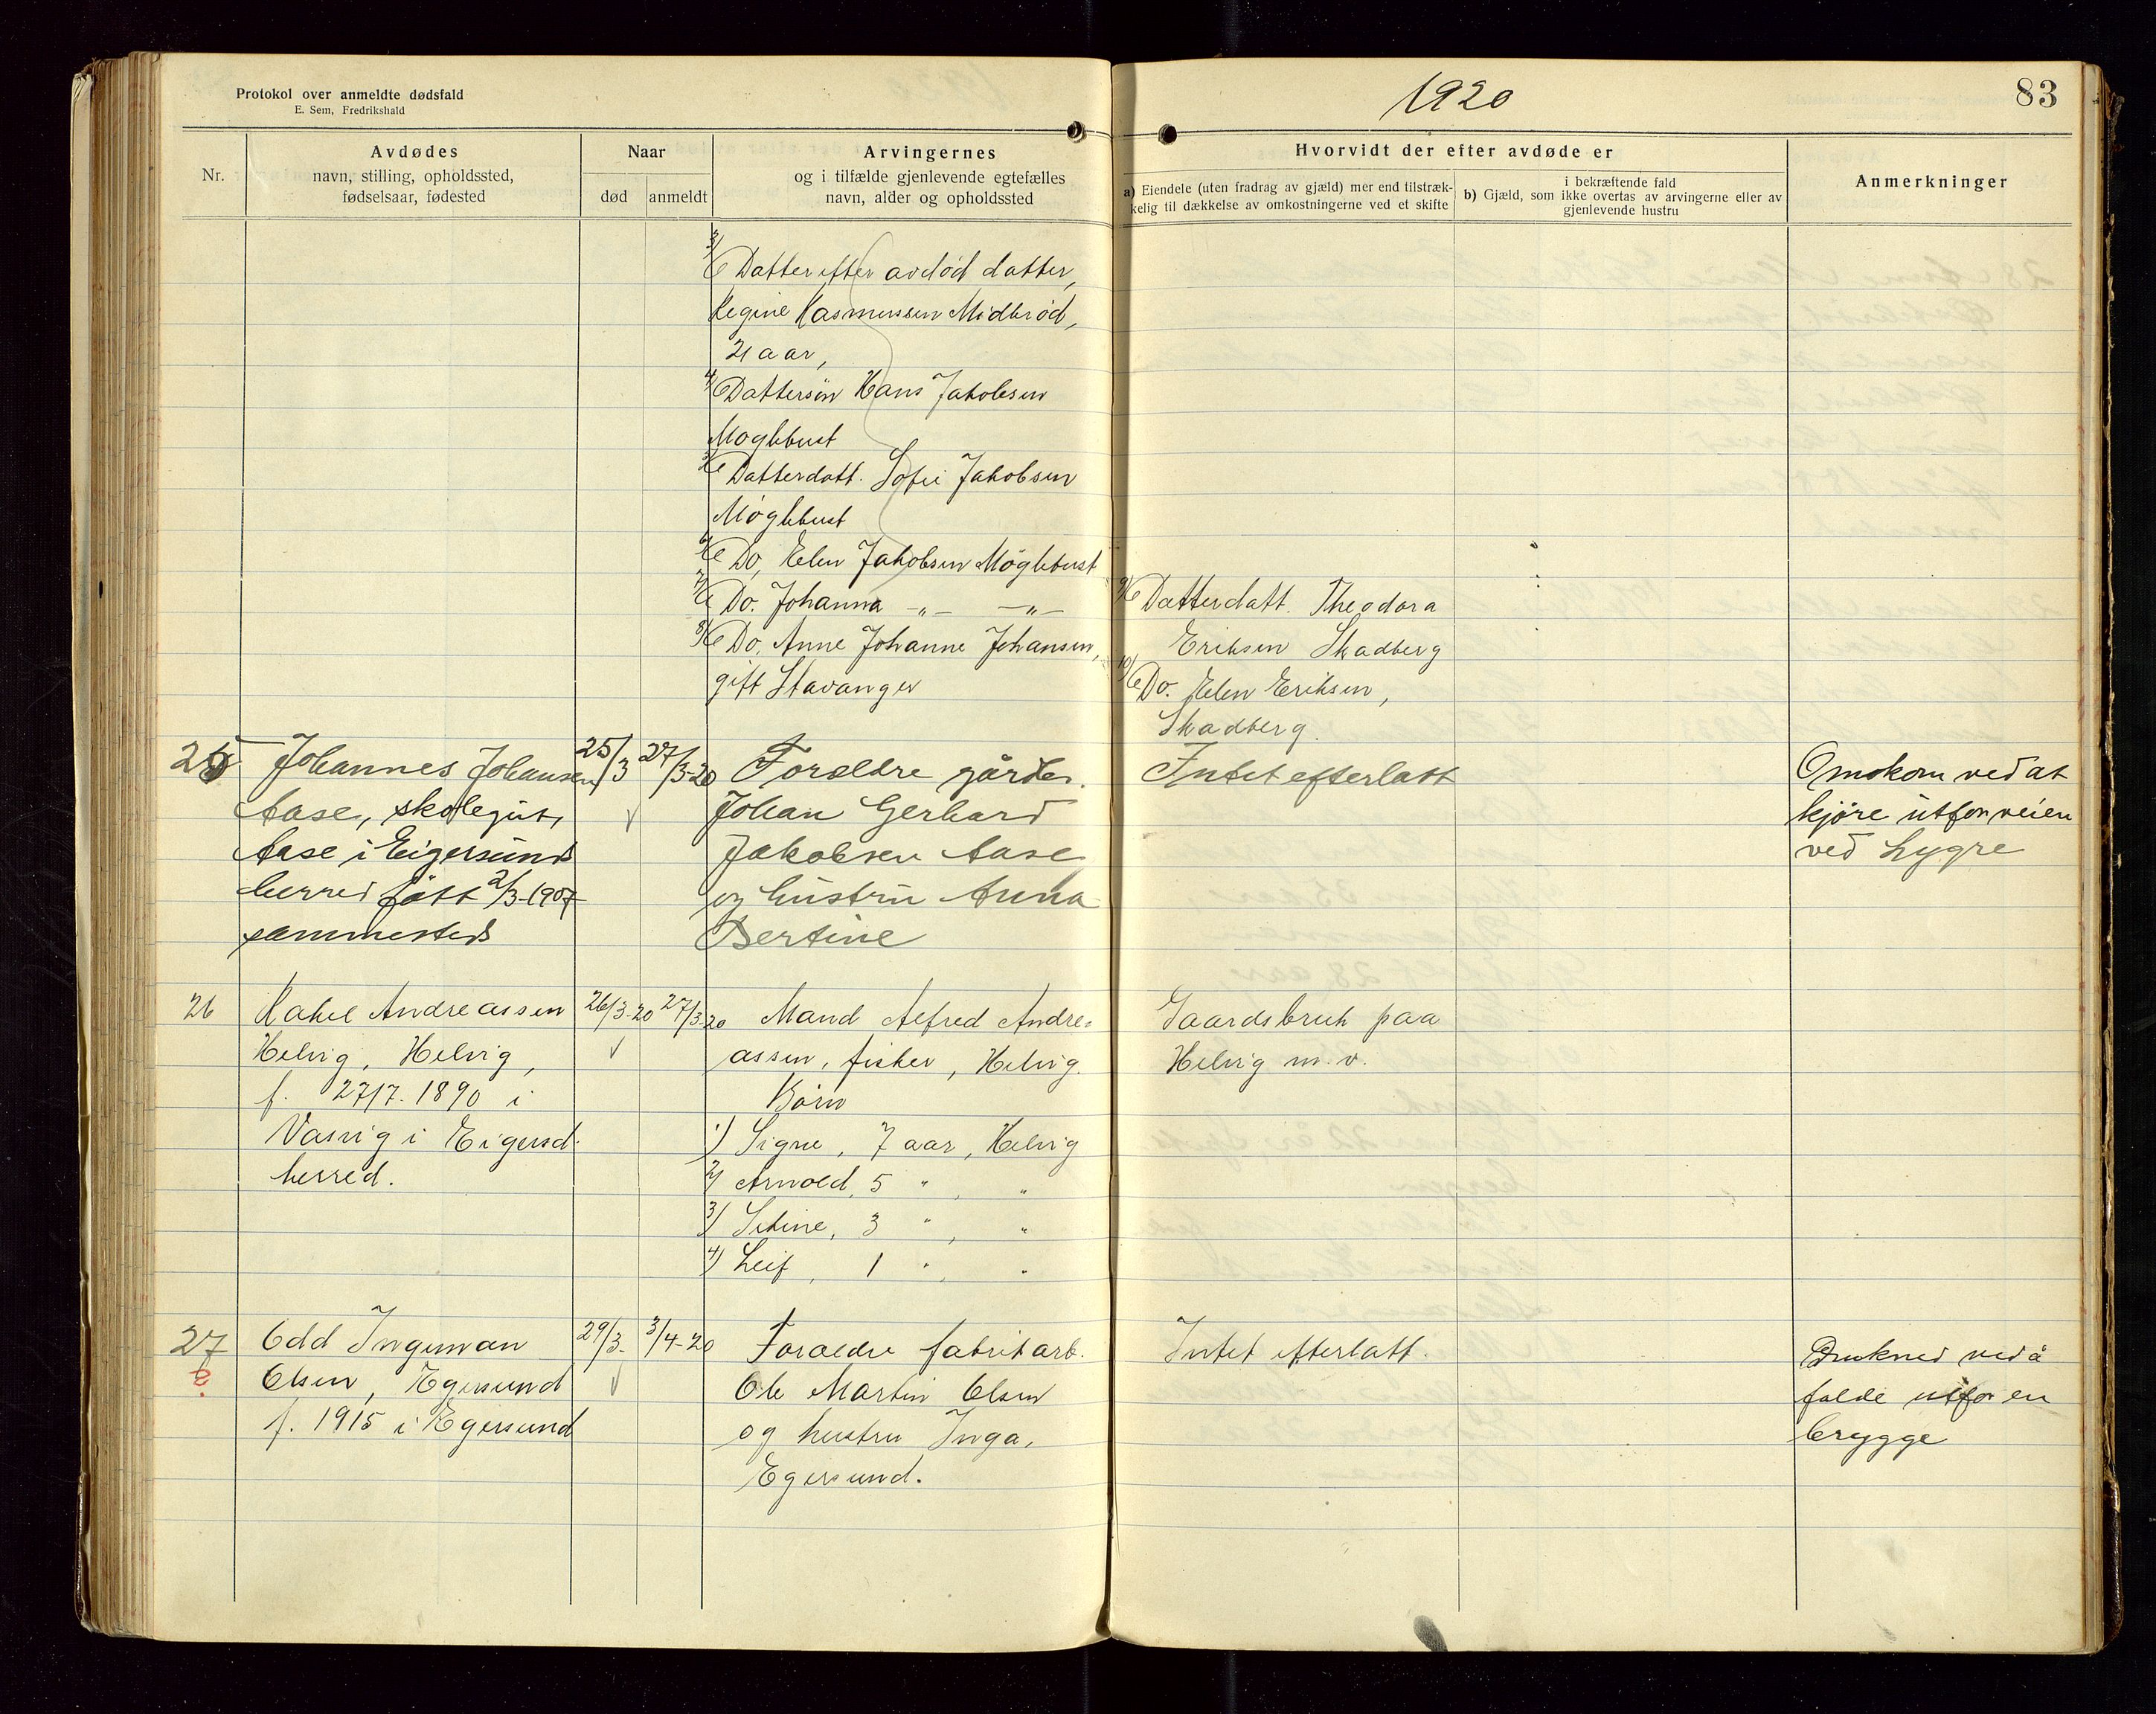 Protokol over anmeldte dødsfald
E. Sem, Fredrikshald
1920
83
Nr.
Avdødes
navn, stilling, opholdssted,
fødselsaar, fødested
Naar
død
anmeldt
Arvingernes
og i tilfælde gjenlevende egtefælles
navn, alder og opholdssted
Hvorvidt der efter avdøde er
a) Eiendele (uten fradrag av gjæld) mer end tilstræk-
kelig til dækkelse av omkostningerne ved et skifte
i bekræftende fald
b) Gjæld, som ikke overtas av arvingerne eller av
gjenlevende hustru
Anmerkninger
3/ Datter efter avdød datter,
Regine Rasmussen Midbrød,
21 aar,
4/ Dattersøn Hans Jakobsen
Møglebust
5/ Datterdatt. Sofie Jakobsen
Møglebust
6/ Do, Elen Jakobsen Møglebust
7/ Do. Johanna -„- -„-
8/ Do. Anne Johanne Johansen,
gift Stavanger
9/ Datterdatt. Theodora
Eriksen Skadberg
10/ Do. Elen Eriksen,
Skadberg.
25 Johannes Johansen
Aase, skolegut,
Aase i Eigersund
herred født 2/3-1907
sammesteds
25/3
27/3-20
Forældre gårdbr.
Johan Gerhard
Jakobsen Aase
og hustru Anna
Bertine
Intet efterlatt
Omkom ved at
kjøre utfor veien
ved Lygre
26 Rakel Andreassen
Helvig, Helvig,
f. 27/7. 1890 i
Vasvig i Eigersd.
herred.
26/3-20
27/3-20
Mand Alfred Andre=
assen, fisker, Helvig.
Børn
1) Signe, 7 aar, Helvig
2) Arnold, 5 " , "
3) Sikine, 3 " , "
4) Leif, 1 " , "
Gaardsbruk paa
Helvig m. v.
27 Odd Ingeman
Olsen, Egersund
f. 1915 i Egersund
?
29/3-
3/4-20
Forældre fabrikarb.
Ole Martin Olsen
og hustru Inga,
Egersund.
Intet efterlatt.
Druknet ved å
falde utfor en
brygge